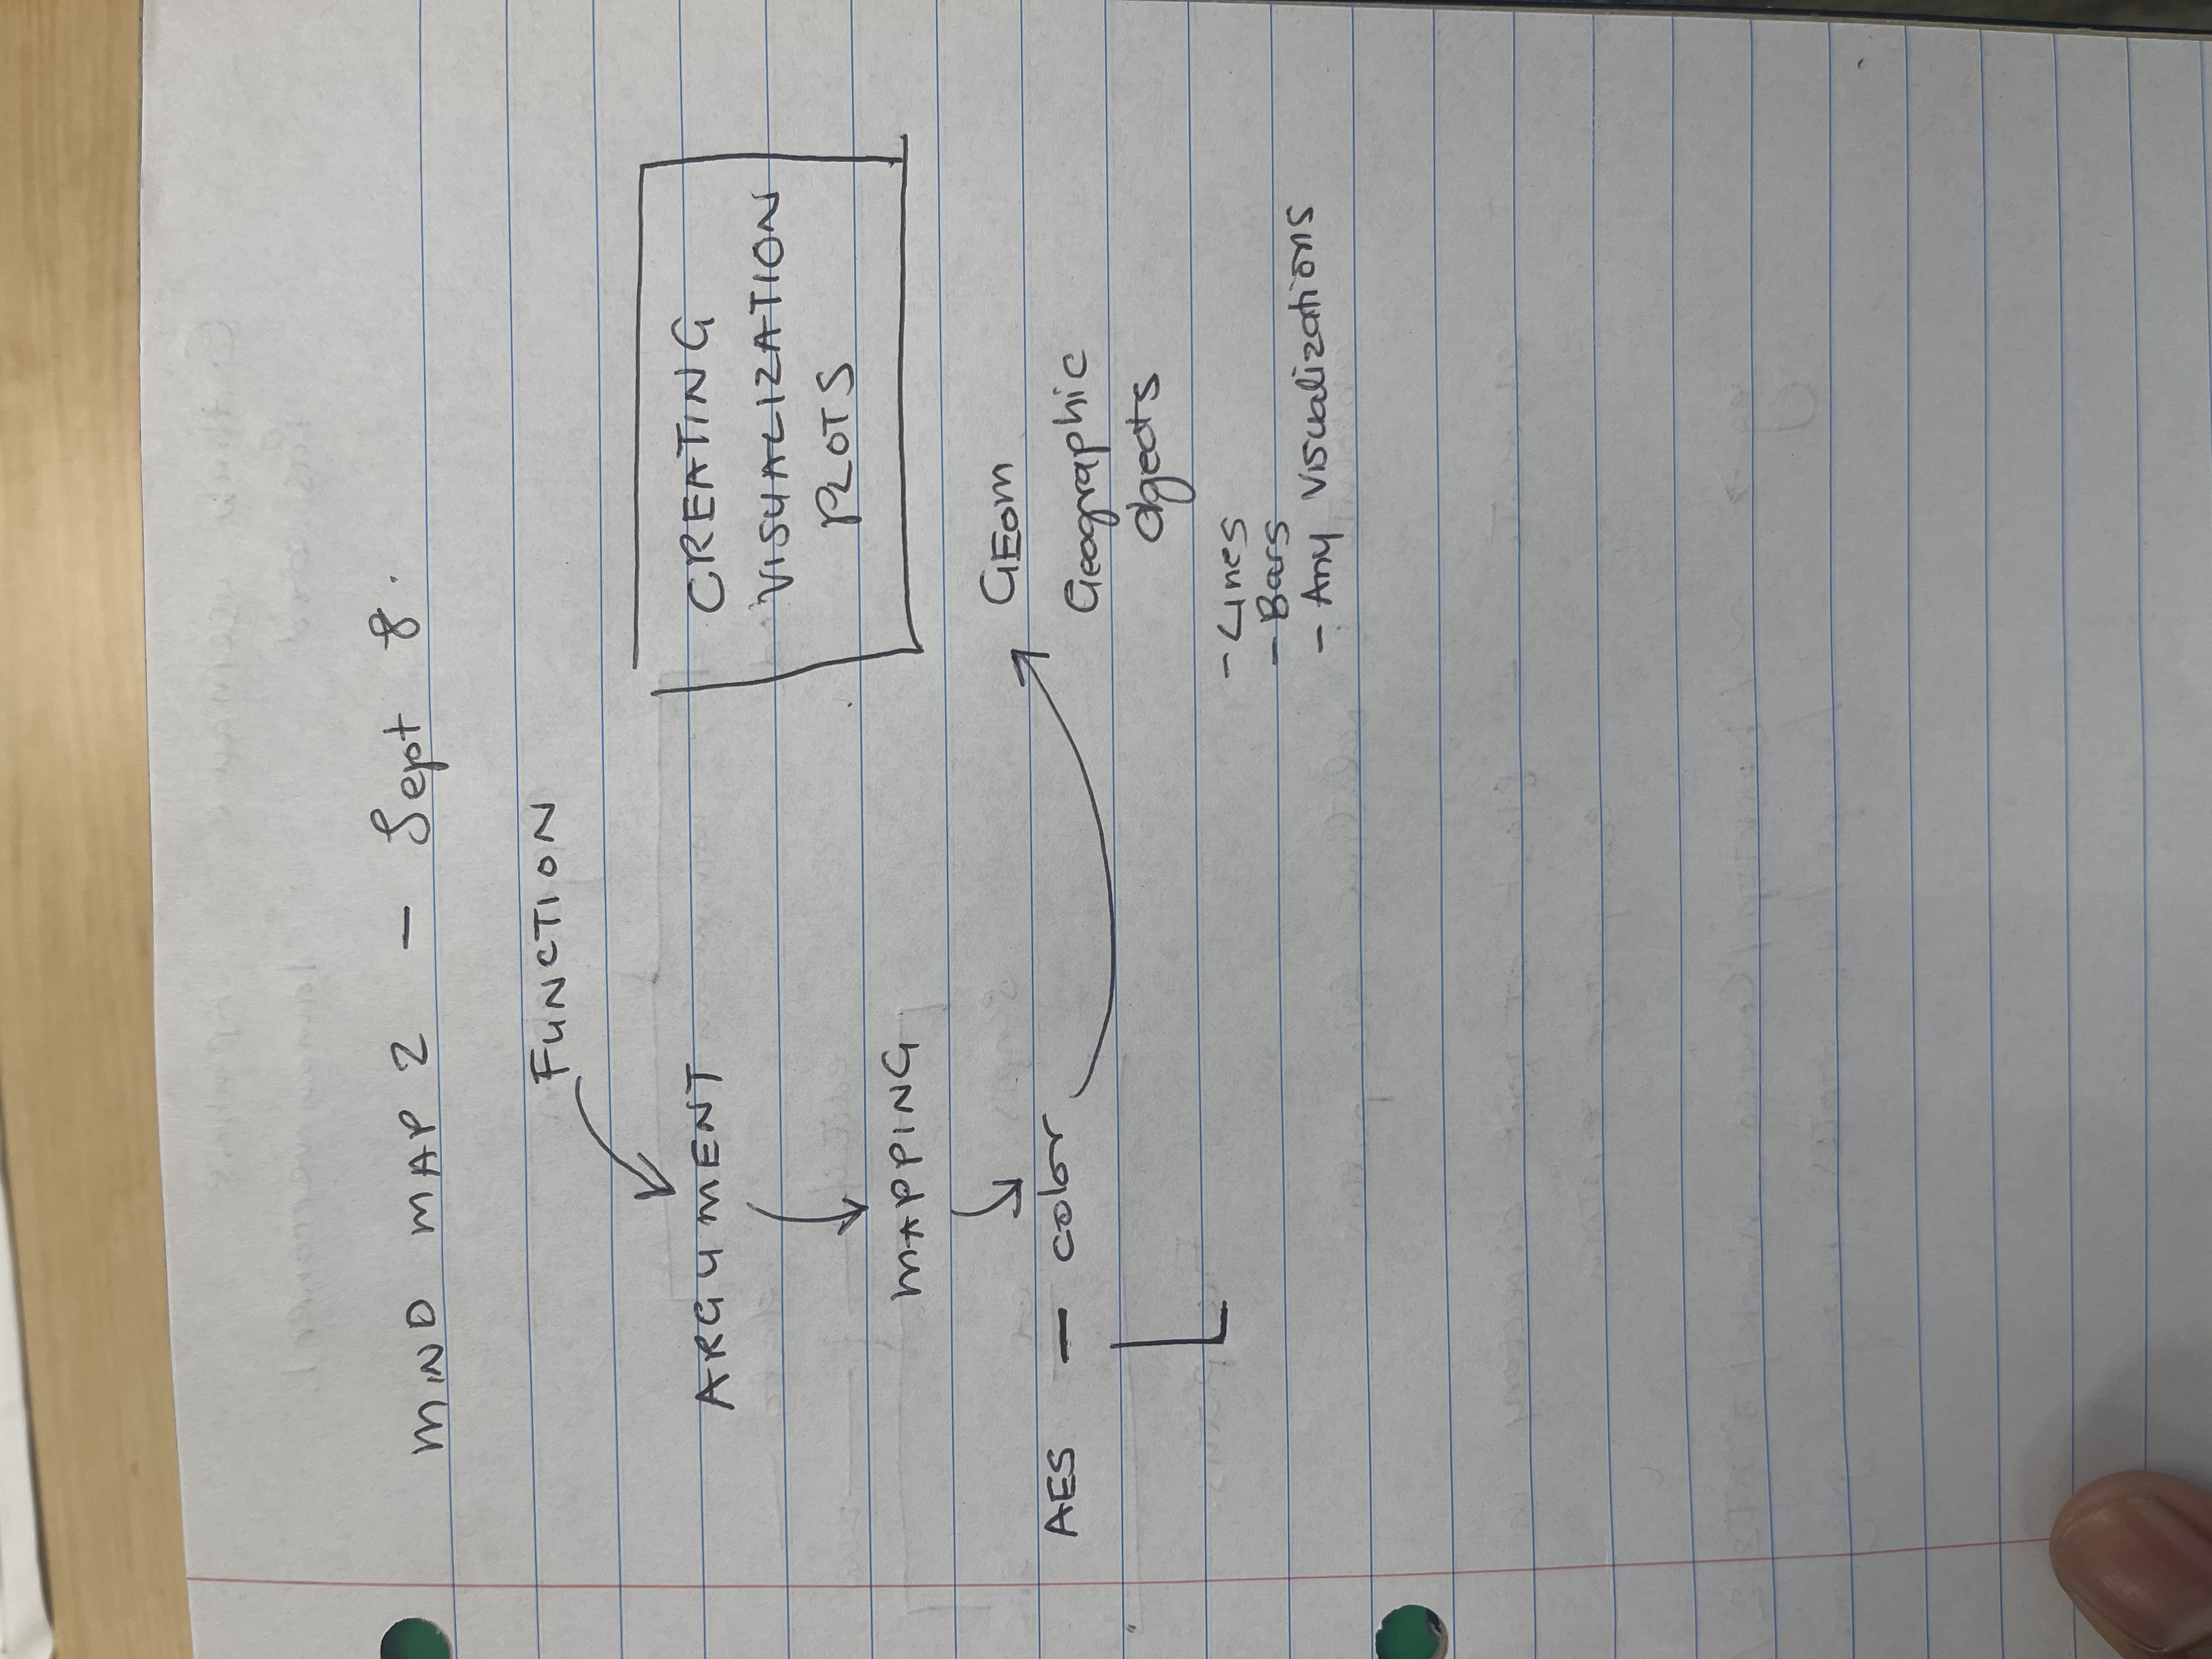 MIND MAP 2 - Sept 8.
FUNCTION
ARGUMENT
MAPPING
AES - color
CREATING
VISUALIZATION
PLOTS
GEOM
Geographic
objects
- Lines
- Bars
- Any Visualizations